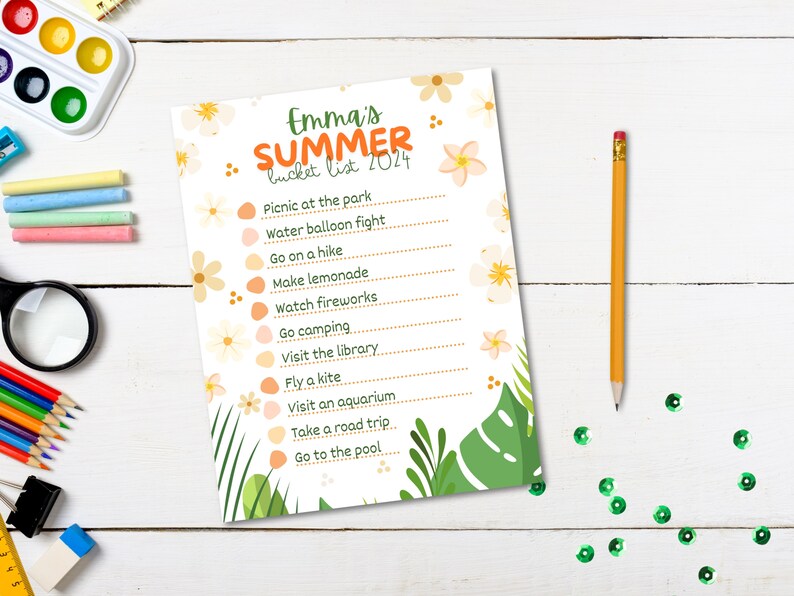 Emma's
SUMMER
bucket list 2024
Picnic at the park
Water balloon fight
Go on a hike
Make lemonade
Watch fireworks
Go camping
Visit the library
Fly a kite
Visit an aquarium
Take a road trip
Go to the pool